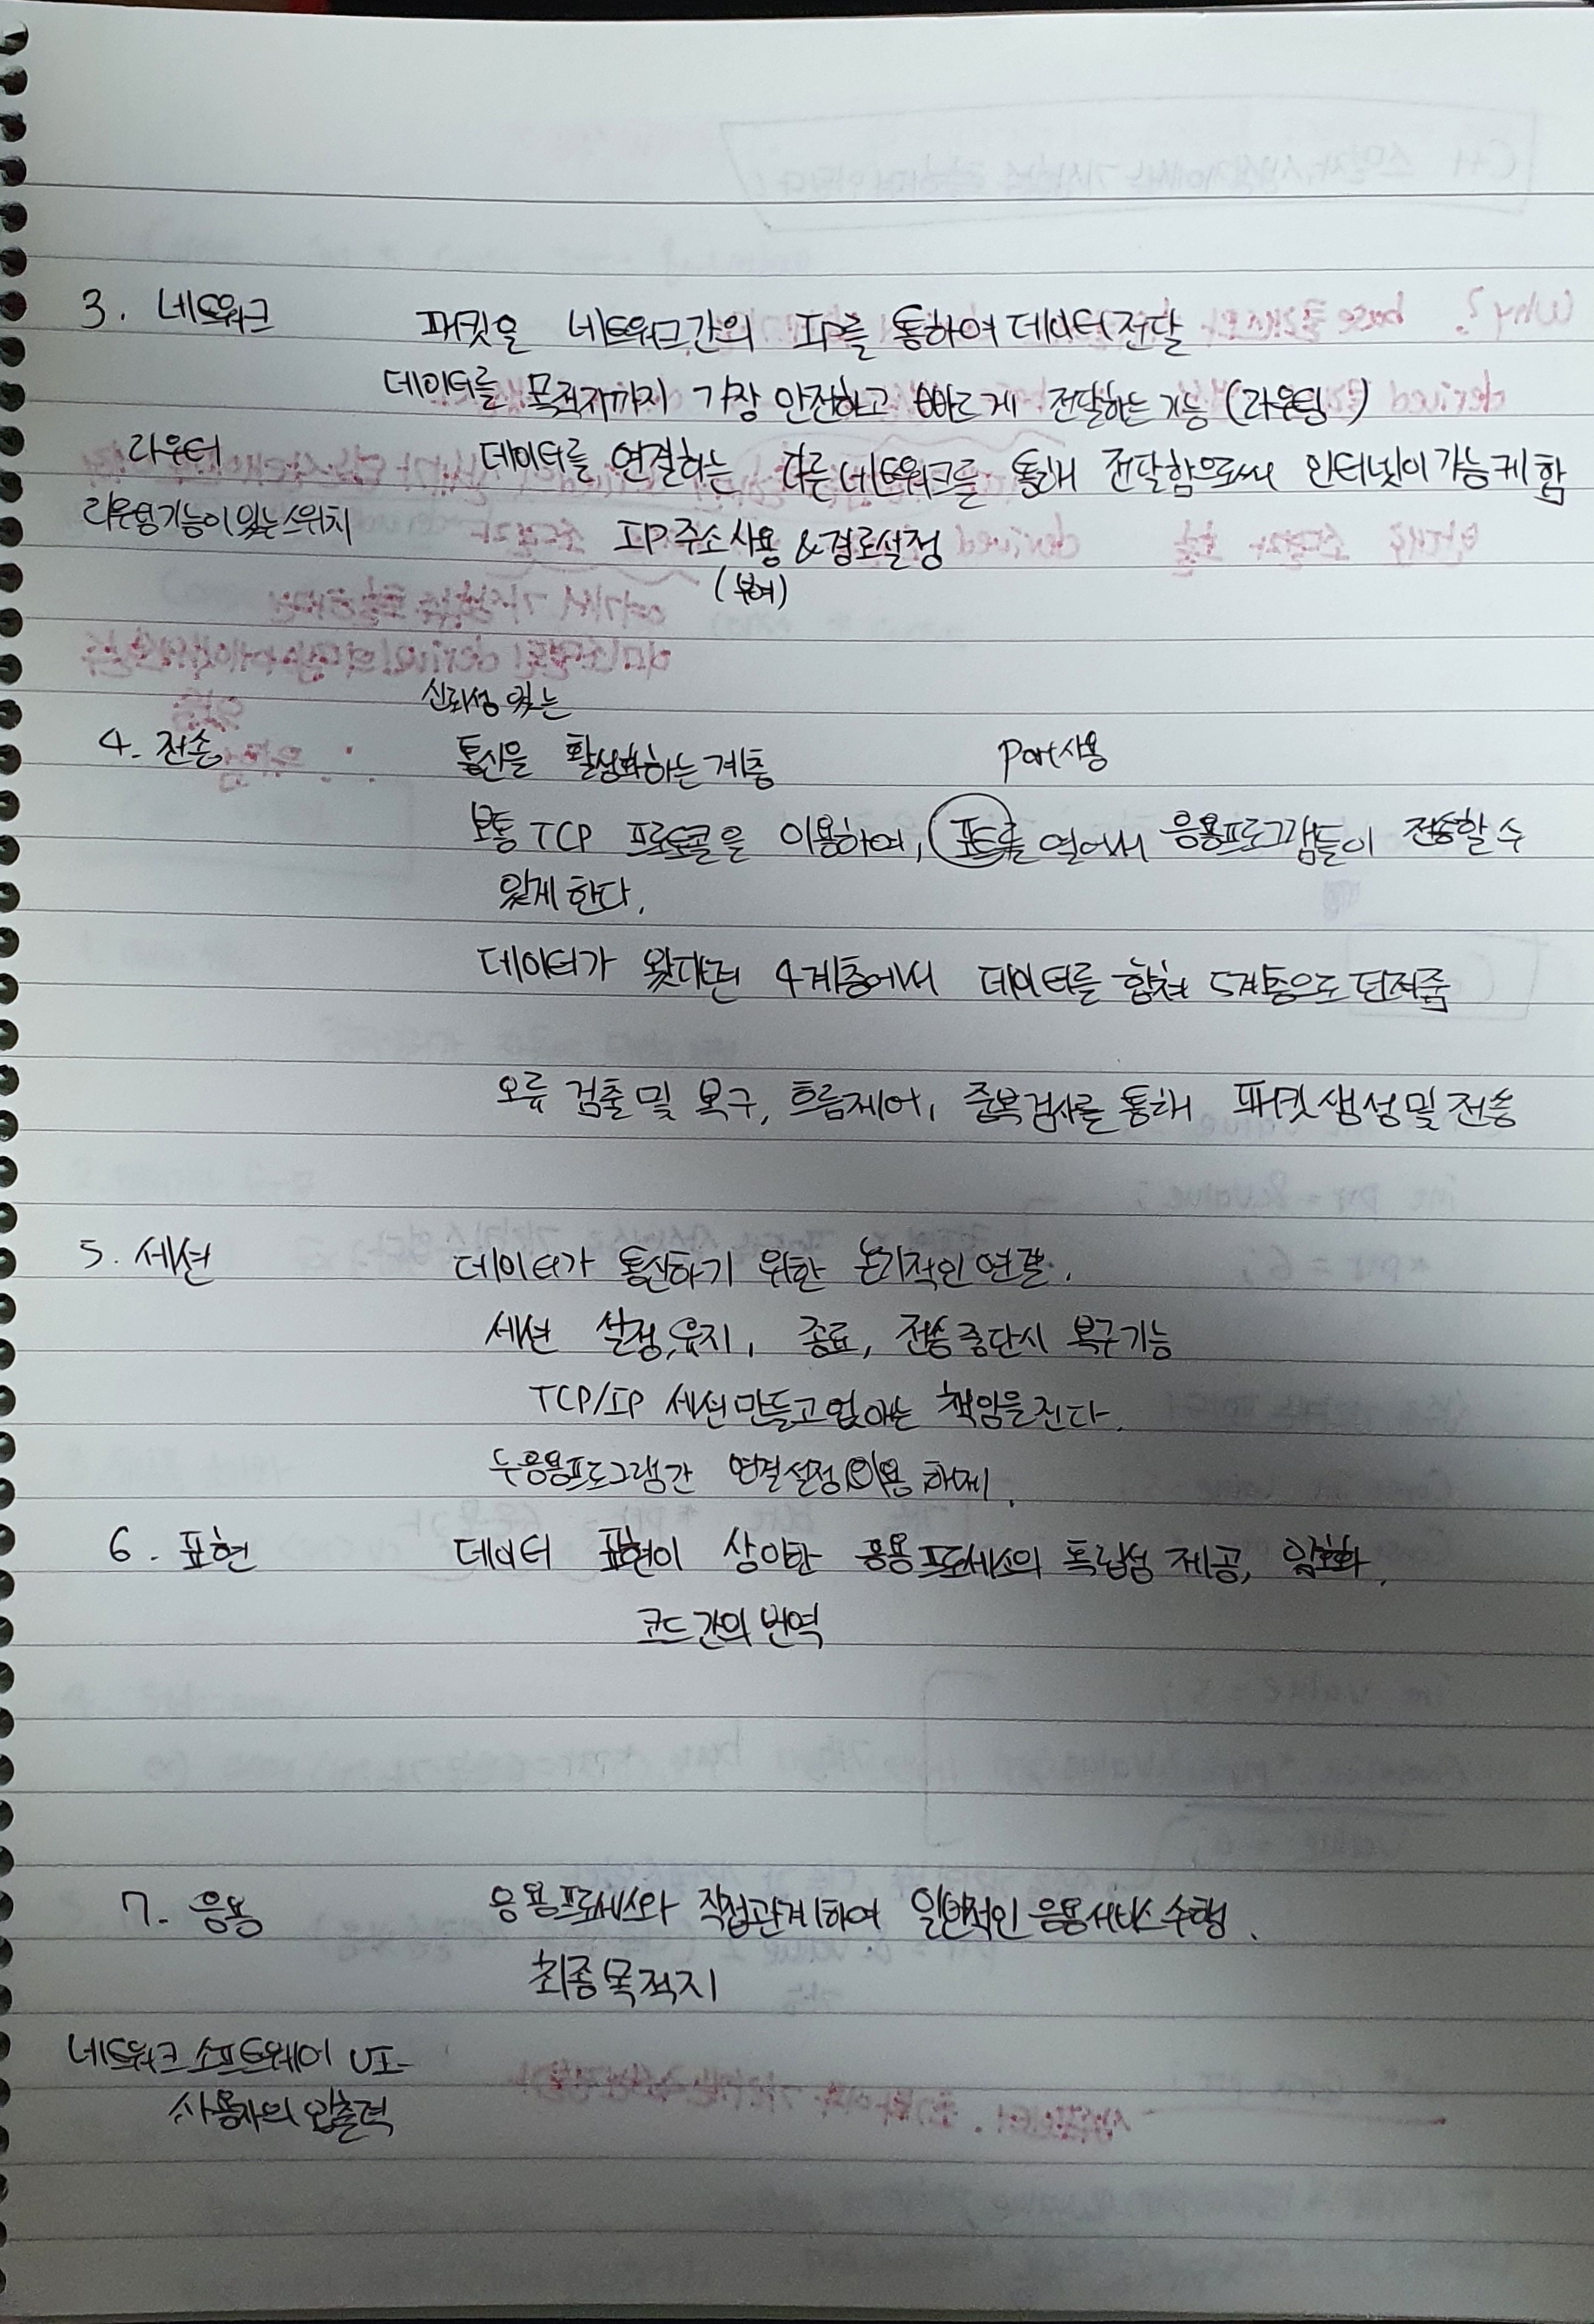 3. 네트워크 패킷을 네트워크간의 IP를 통하여 데이터 전달
데이터를 목적지까지 가장 안전하고 빠르게 전달하는 기능 (라우팅)
라우터 데이터를 연결하는 다른 네트워크를 통해 전달함으로써 인터넷이 가능케 함
라우팅기능이 있는 스위치 IP 주소사용 & 경로설정
(부여)
신뢰성 있는
4. 전송 통신을 활성화하는 계층 Port사용
보통 TCP 프로토콜을 이용하여, 포트를 열어서 응용프로그램들이 전송할 수
있게 한다.
데이터가 왔다면 4계층에서 데이터를 합쳐 5계층으로 던져줌
오류 검출 및 복구, 흐름제어, 중복검사를 통해 패킷 생성 및 전송
5. 세션 데이터가 통신하기 위한 논리적인 연결.
세션 설정, 유지, 종료, 전송 중단시 복구기능
TCP/IP 세션 만들고 없애는 책임을 진다.
두 응용프로그램간 연결설정 이용 해제.
6. 표현 데이터 표현이 상이한 응용 프로세스의 독립성 제공, 암호화,
코드 간의 번역
7. 응용 응용프로세스와 직접관계하여 일반적인 응용서비스 수행.
최종목적지
네트워크 소프트웨어 UI-
사용자의 입출력